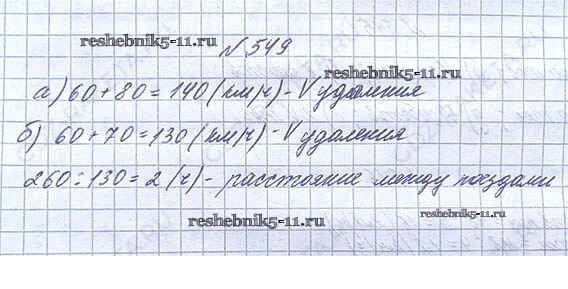 reshebnik5-11.ru
№549
reshebnik5-11.ru
а) 60+80=140 (км/ч) - V удаления
б) 60+70=130 (км/ч) - V удаления
260:130=2 (ч) - расстояние между поездами
reshebnik5-11.ru
reshebnik5-11.ru